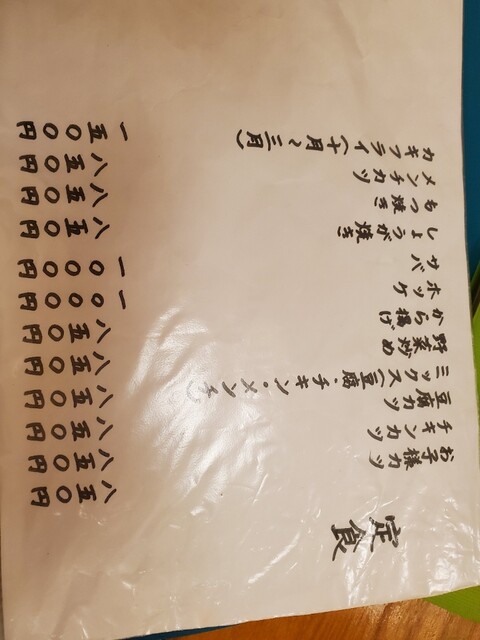 定食
お子様カツ 八五〇円
チキンカツ 八五〇円
豆腐カツ 八五〇円
ミックス(豆腐・チキン・メンチ) 八五〇円
野菜炒め 八五〇円
から揚げ 八五〇円
ホッケ 一〇〇〇円
サバ 一〇〇〇円
しょうが焼き 八五〇円
もつ焼き 八五〇円
メンチカツ 八五〇円
カキフライ(十月〜三月) 一五〇〇円